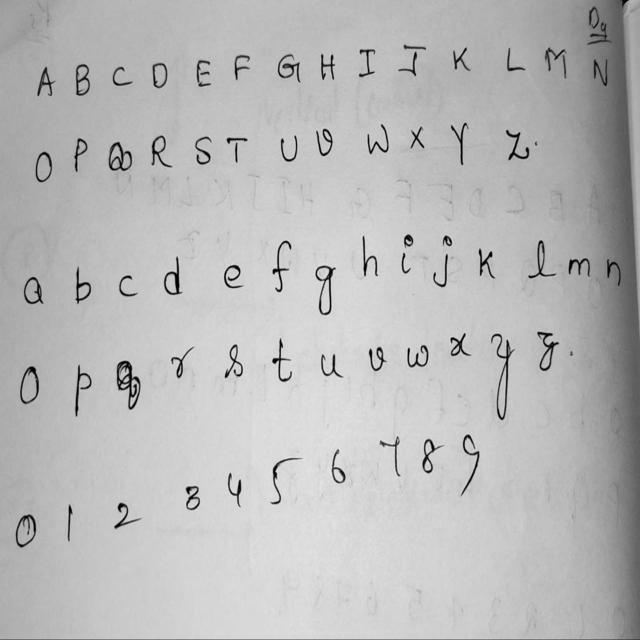 A B C D E F G H I J K L M N
O P Q R S T U V W X Y Z.
a b c d e f g h i j k l m n
o p q r s t u v w x y z.
0 1 2 3 4 5 6 7 8 9